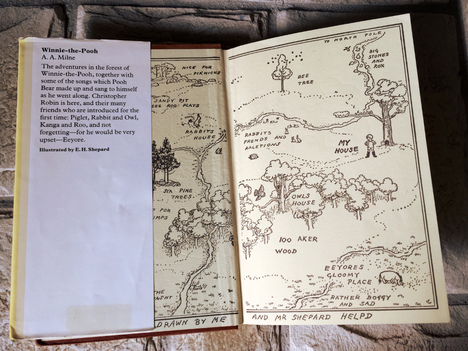 Winnie-the-Pooh
A. A. Milne
The adventures in the forest of
Winnie-the-Pooh, together with
some of the songs which Pooh
Bear made up and sang to himself
as he went along. Christopher
Robin is here, and their many
friends who are introduced for the
first time: Piglet, Rabbit and Owl,
Kanga and Roo, and not
forgetting—for he would be very
upset—Eeyore.
Illustrated by E. H. Shepard
NICE FOR
PIKNICKS
SANDY PIT
ROO PLAYS
RABBITS
HOUSE
SIX PINE
TREES
FOR
DRAWN BY ME
TO NORTH POLE
BIG
STONES
AND
ROX
BEE
TREE
RABBITS
FRENDS AND
RALETIONS
MY
HOUSE
OWLS
HOUSE
100 AKER
WOOD
EEYORES
GLOOMY
PLACE
RATHER BOGGY
AND SAD
AND MR SHEPARD HELPD